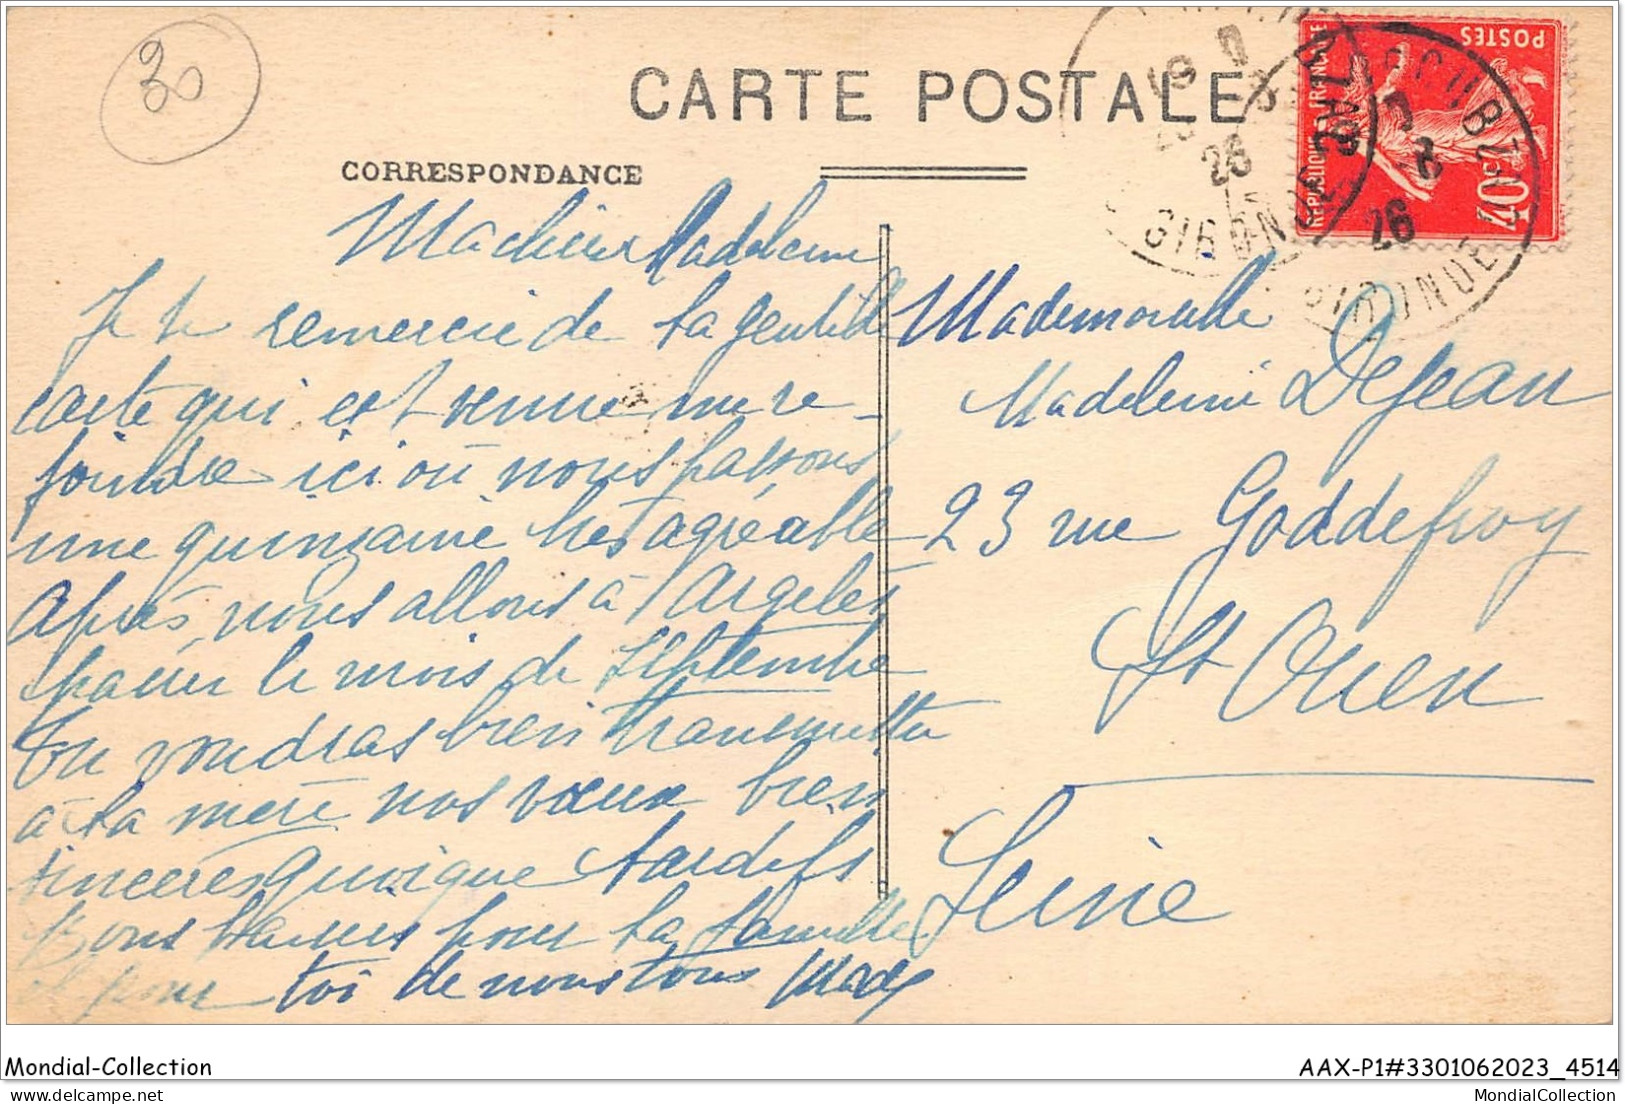 30
CARTE POSTALE
CORRESPONDANCE
POSTES
REPUBLIQUE FRANCAISE
40c
26
GIRONDE
26
GIRONDE
Ma chère Madeleine
Je te remercie de ta gentille
carte qui est venue me re-
joindre ici où nous passons
une quinzaine très agréable
Après, nous allons à Argelès
passer le mois de Septembre
Tu voudras bien transmettre
à ta mère nos vœux bien
sincères quoique tardifs
Bons baisers pour ta famille
et pour toi de nous tous Mady
Mademoiselle
Madeleine Dejean
23 rue Goddefroy
St Ouen
Seine
Mondial-Collection
AAX-P1#3301062023_4514
MondialCollection